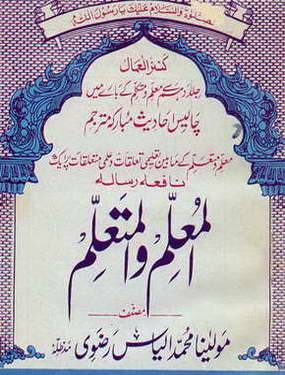 الصلوٰة والسلام علیک یا رسول اللہ
کنز العمال
جلد دہم کے معلم و متعلم کے بارے میں
چالیس احادیث مبارکہ مترجم
معلم و متعلم کے مابین تعلیمی تعلقات و علمی متعلقات پر ایک
نافعہ رسالہ
المعلم والمتعلم
مصنف
مولینا محمد الیاس رضوی مدظلہ